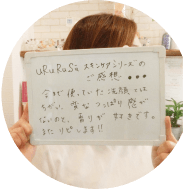 uRuRuSa スキンケアシリーズの
ご感想 ・・・
今まで使っていた洗顔とは
ちがい、変なつっぱり感が
ないので、香りが好きです。
またリピします!!